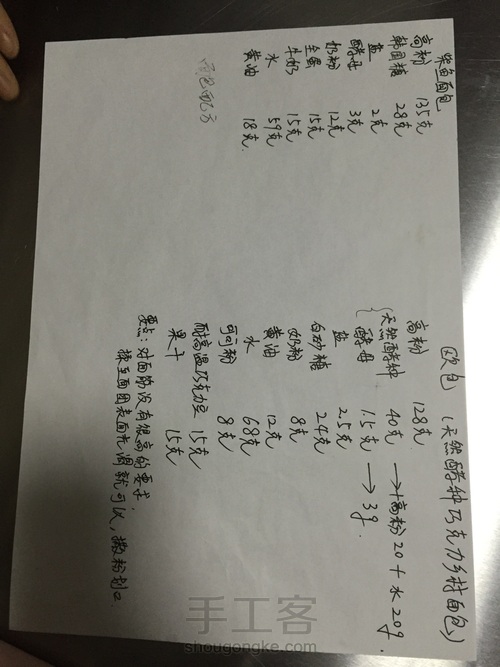 柴鱼面包
高粉 135克
韩国糖 28克
盐 2克
酵母 3克
奶粉 12克
全蛋 15克
牛奶 15克
水 59克
黄油 18克
面包配方
欧包 (天然酵种巧克力乡村面包)
高粉 128克
天然酵种 40克 → +高粉20+水20g
酵母 1.5克 → 3g.
盐 2.5克
白砂糖 24克
奶粉 8克
黄油 12克
水 68克
可可粉 8克
耐高温巧克力豆 15克
果干 15克
要点:对面筋没有很高的要求,
揉至面团表面光滑就可以,撒粉划口
手工客
shougongke.com